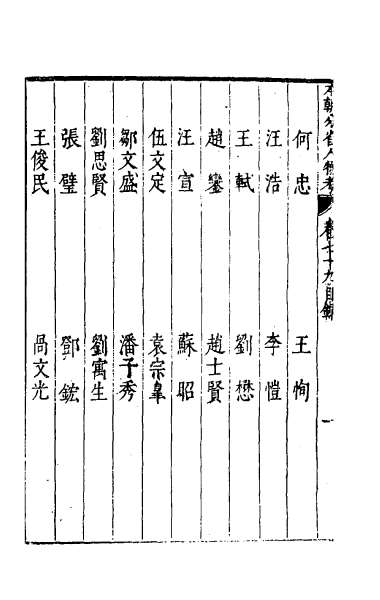 本朝分省人物考 卷七十九目錄 一
何忠 王恂
汪浩 李愷
王軾 劉懋
趙鑾 趙士賢
汪宣 蘇昭
伍文定 袁宗臯
鄒文盛 潘子秀
劉思賢 劉寓生
張璧 鄧鋐
王俊民 咼文光